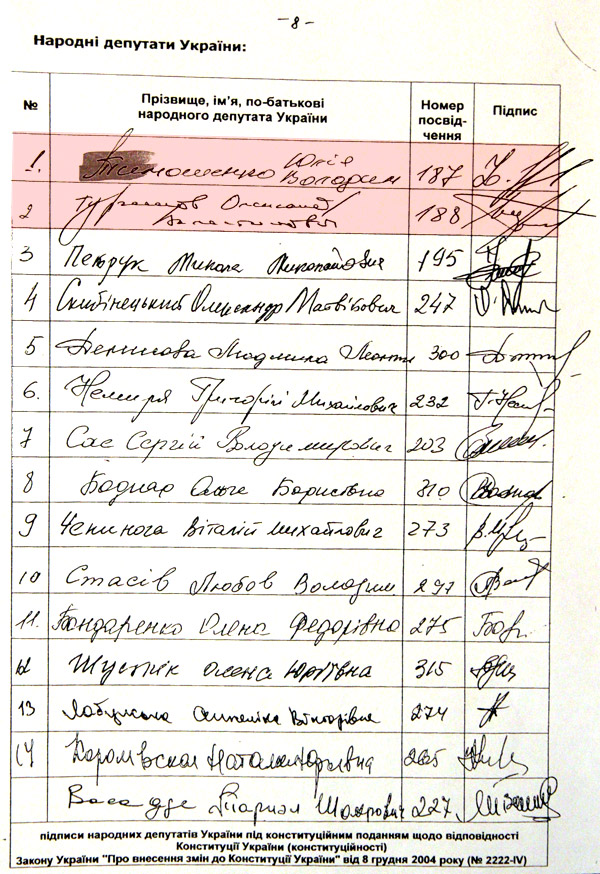 - 8 -
Народні депутати України:
№
Прізвище, ім'я, по-батькові
народного депутата України
Номер
посвід-
чення
Підпис
1. Тимошенко Юлія
Володим 187
2 Турчинов Олександр
Валентинович 188
3 Петрук Микола Миколайович 195
4 Скибінецький Олександр Матвійович 247
5 Денисова Людмила Леонтіївна 300
6. Немиря Григорій Михайлович 232
7 Сас Сергій Володимирович 203
8 Боднар Ольга Борисівна 310
9 Чепинога Віталій Михайлович 273
10 Стасів Любов Володим 297
11. Бондаренко Олена Федорівна 275
12 Шустік Олена Юріївна 315
13 Лабунська Анжеліка Вікторівна 274
14 Наталія Юріївна 265
Васадзе Таріел Шакрович 227
підписи народних депутатів України під конституційним поданням щодо відповідності
Конституції України (конституційності)
Закону України "Про внесення змін до Конституції України" від 8 грудня 2004 року (№ 2222-IV)